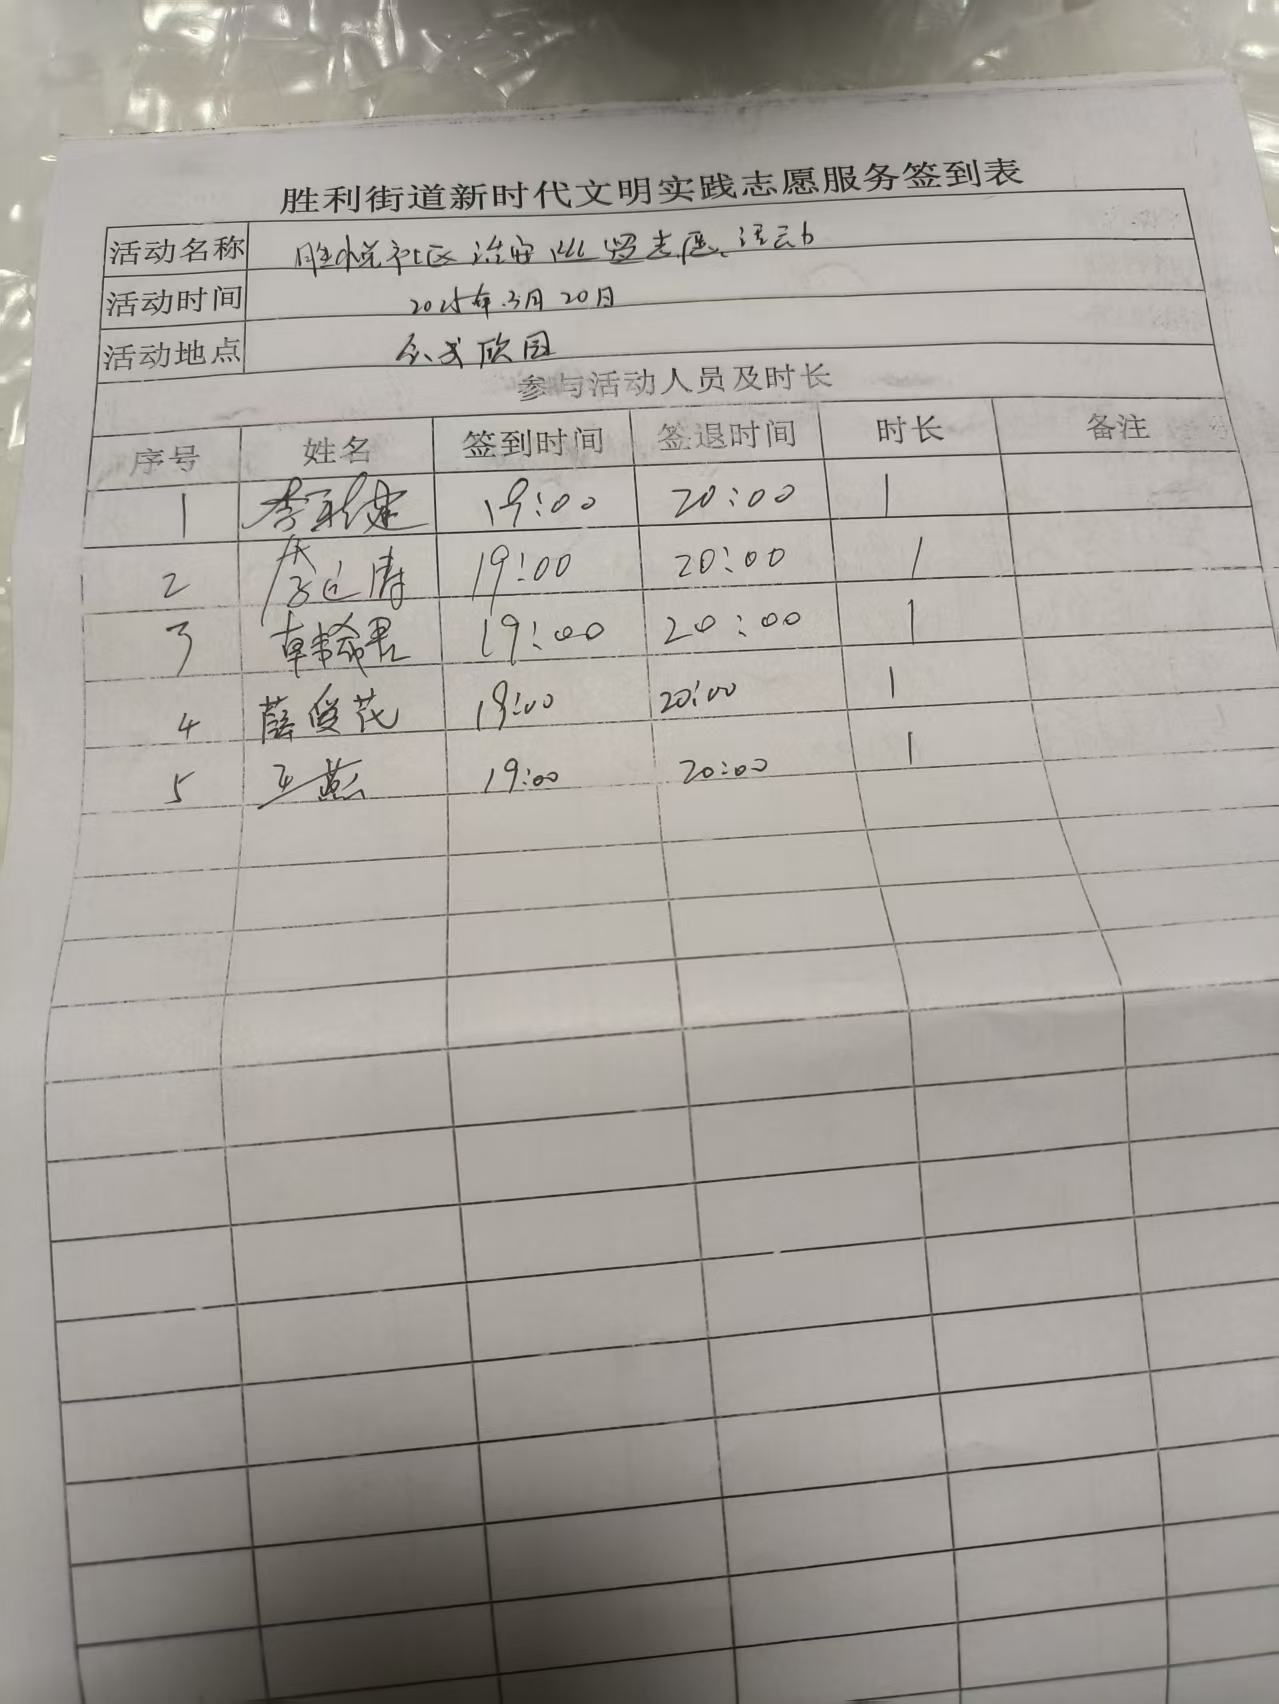 胜利街道新时代文明实践志愿服务签到表
活动名称 胜悦社区治安巡逻志愿活动
活动时间 2025年3月20日
活动地点 欣园
参与活动人员及时长
序号 姓名 签到时间 签退时间 时长 备注
1 李 建 19:00 20:00 1
2 19:00 20:00 1
3 韩 君 19:00 20:00 1
4 薛俊花 19:00 20:00 1
5 王燕 19:00 20:00 1